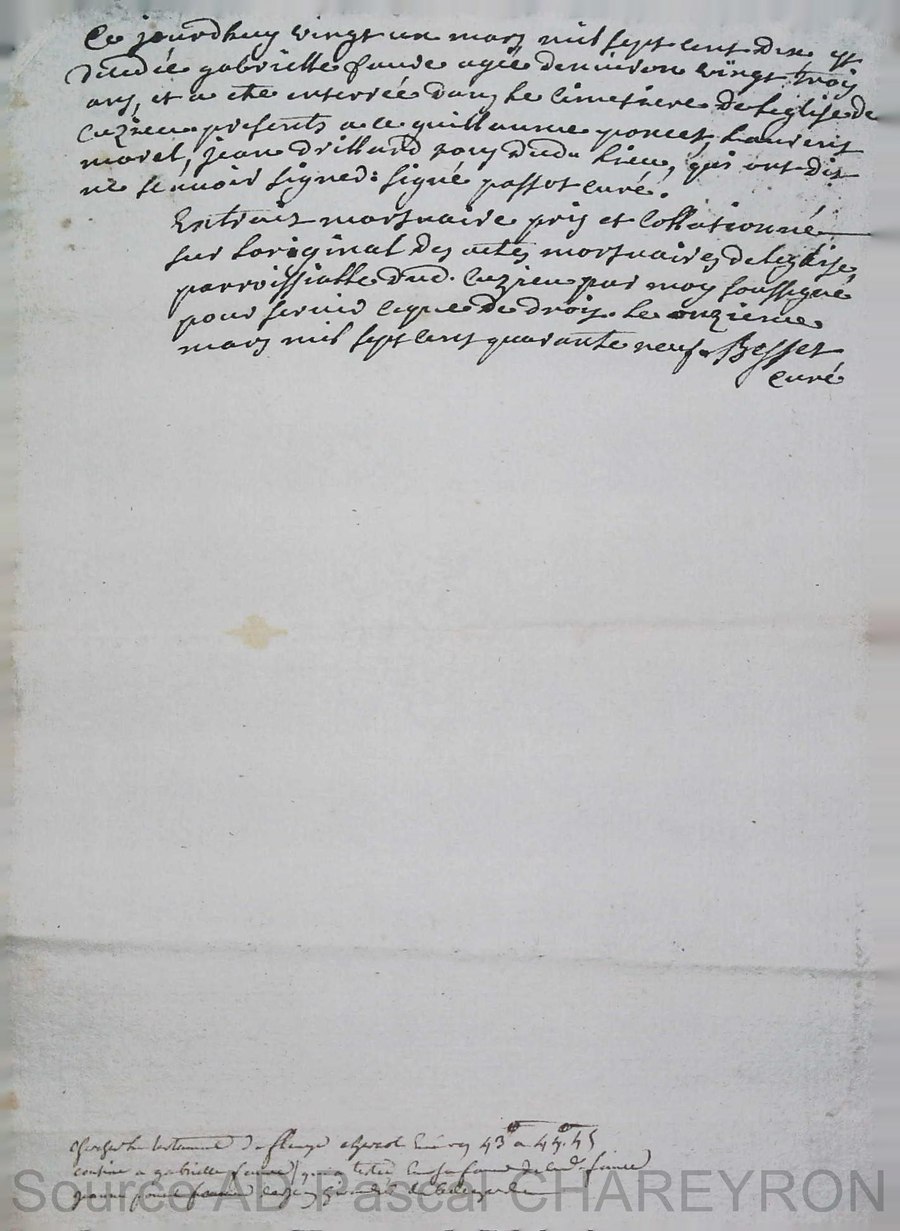 Ce jourdhuy vingt un mars mil sept cent dix est
decedée gabrielle faure agée denviron vingt trois
ans, et a ete enterrée dans le cimetiere de leglise de
Cuzieu presents a ce guillaume poncet, laurent
morel, Jean drillard tous dud. lieu, qui ont dit
ne scavoir signer: signé passot curé.
Extrait mortuaire pris et Collationné
sur loriginal des actes mortuaires de leglise
parroissialle dud. Cuzieu par moy soussigné
pour servir ce que de droit le onzieme
mars mil sept cent quarante neuf Besset
curé
43 a 44. 45
a gabrielle faure
Source AD Pascal CHAREYRON